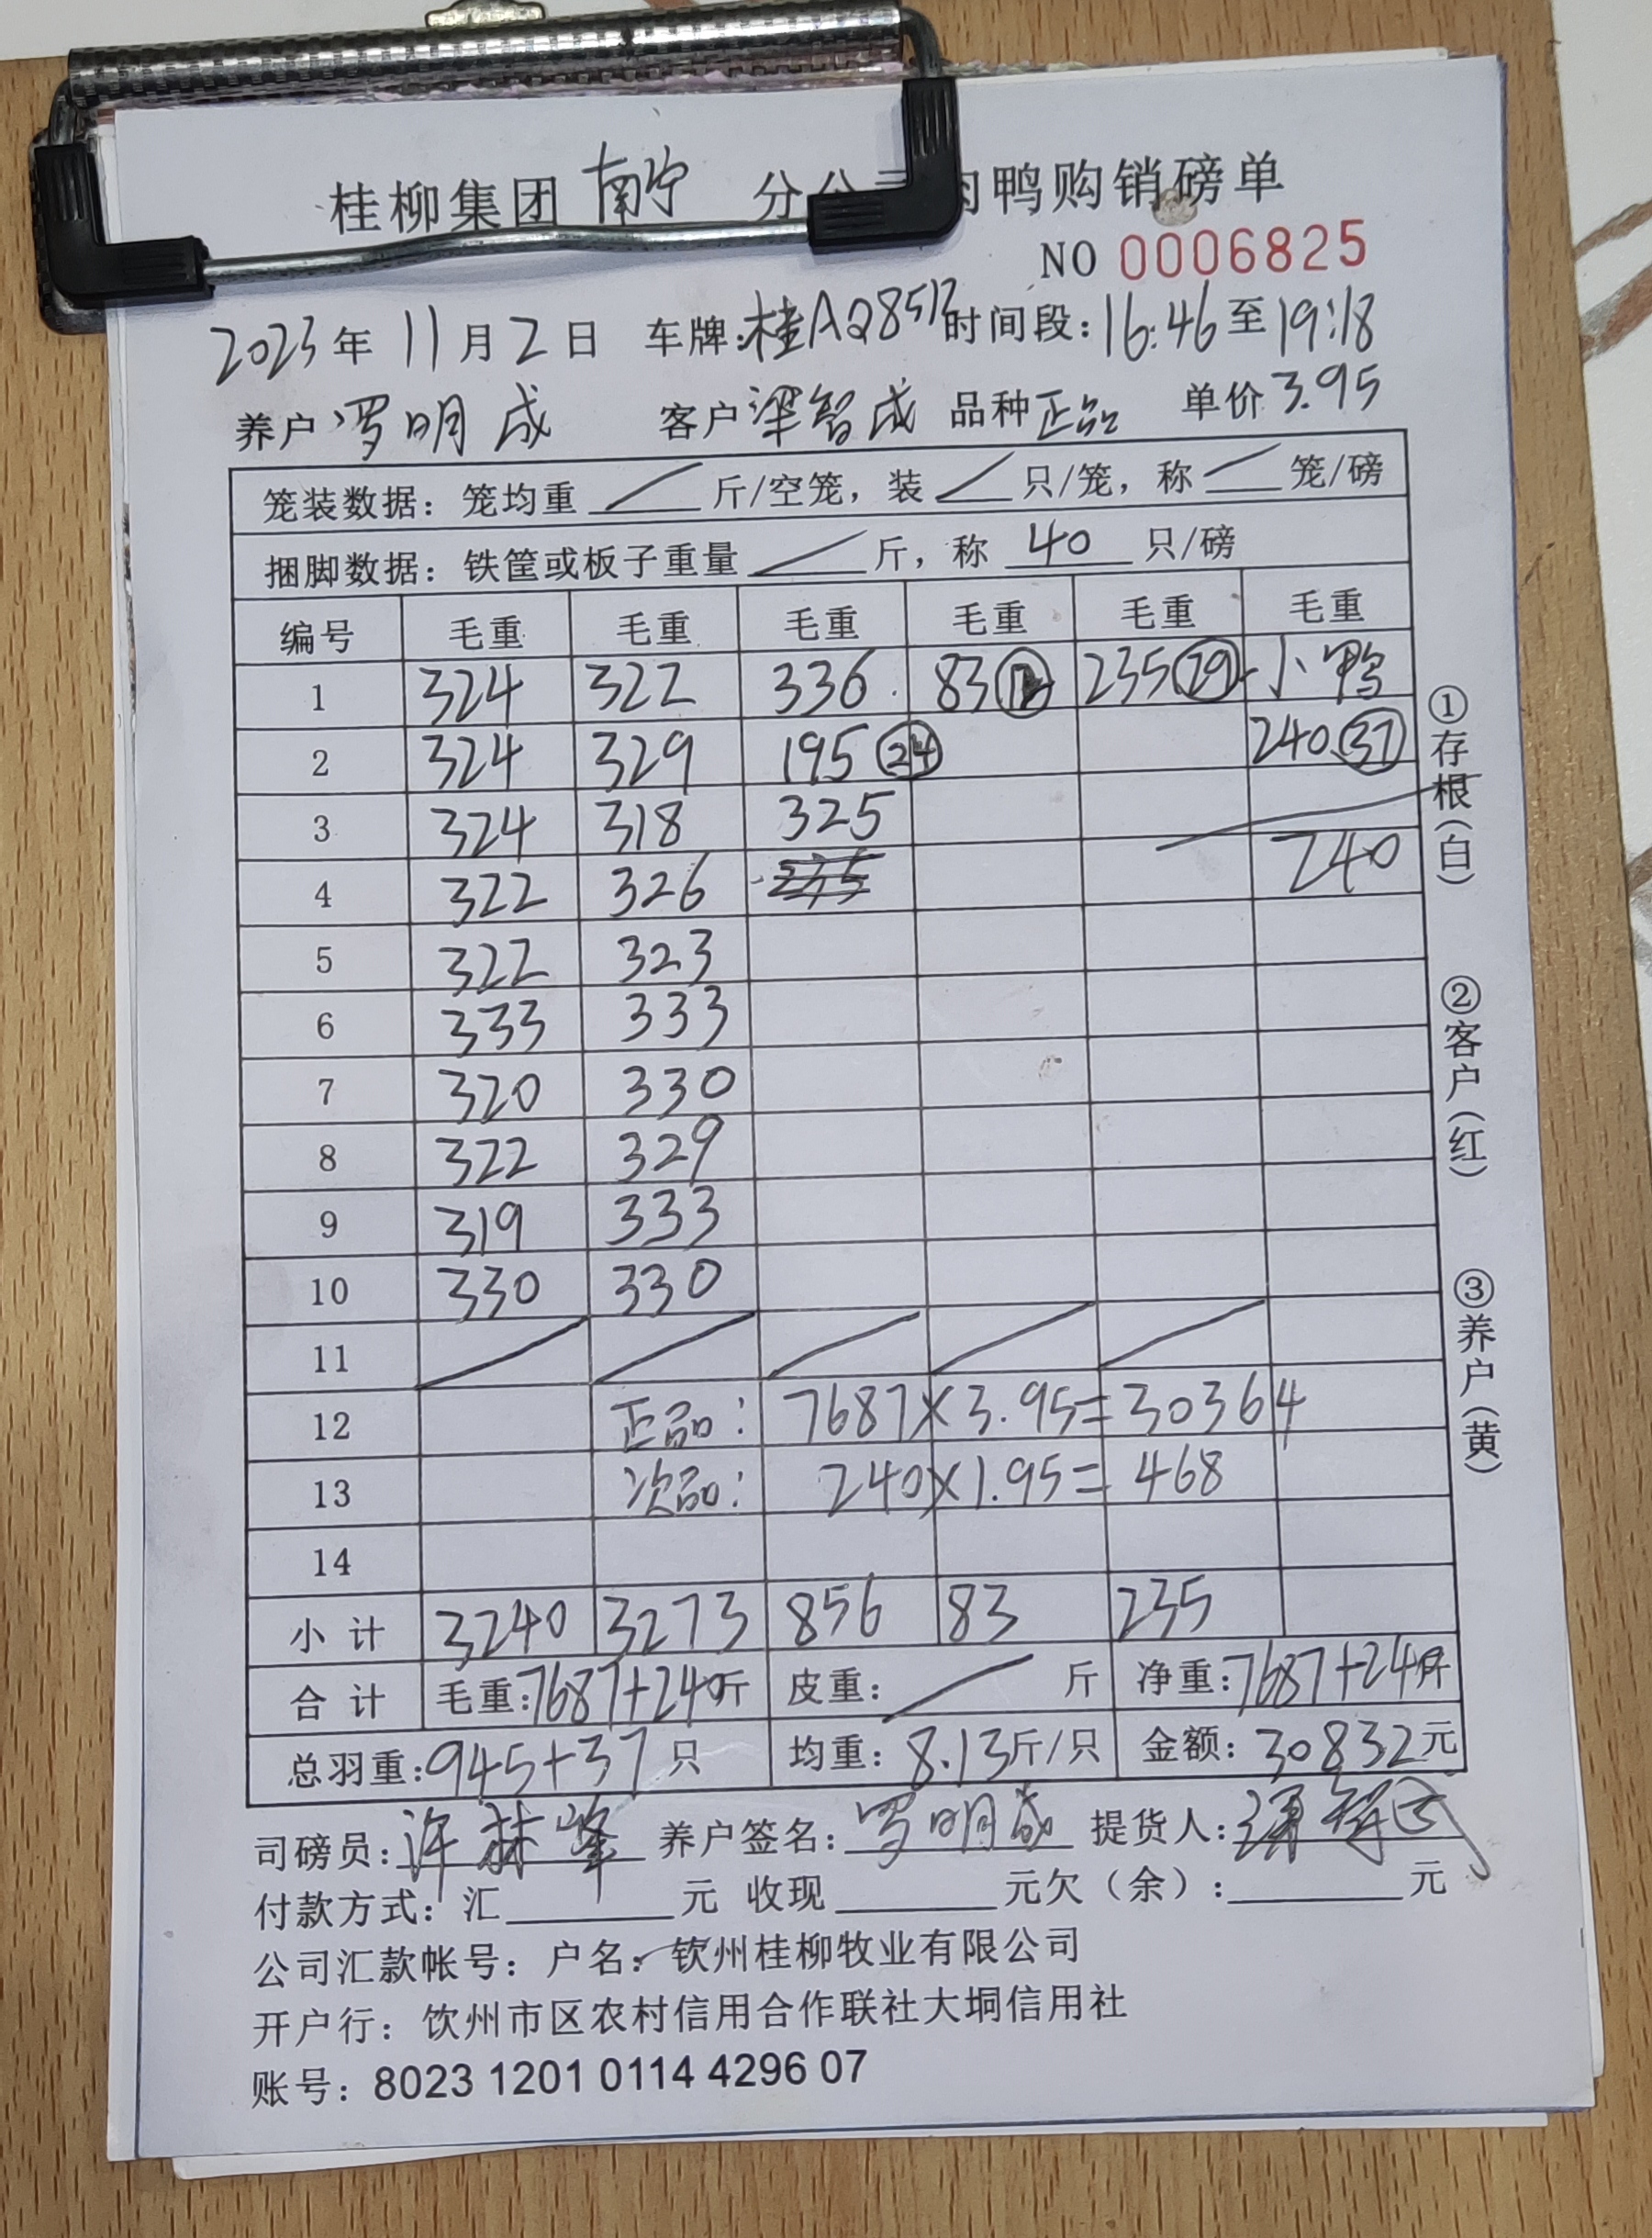 桂柳集团 南宁 分公司肉鸭购销磅单
NO 0006825
2023年 11月2日 车牌:桂AQ851 时间段:16:46至19:18
养户 罗明成 客户 梁智成 品种 正品 单价 3.95
笼装数据：笼均重 / 斤/空笼，装 / 只/笼，称 / 笼/磅
捆脚数据：铁筐或板子重量 / 斤，称 40 只/磅
编号 毛重 毛重 毛重 毛重 毛重 毛重
1 324 322 336 83 235 29 小鸭
2 324 329 195 24 240 37
3 324 318 325
4 322 326 240
5 322 323
6 333 333
7 320 330
8 322 329
9 319 333
10 330 330
11 / / / / /
12 正品: 7687×3.95=30364
13 次品: 240×1.95=468
14
小计 3240 3273 856 83 235
合计 毛重:7687+240斤 皮重: / 斤 净重:7687+240斤
总羽重:945+37只 均重:8.13斤/只 金额:30832元
司磅员:许林峰 养户签名:罗明成 提货人:
付款方式：汇 元 收现 元欠（余）: 元
公司汇款帐号：户名：钦州桂柳牧业有限公司
开户行：饮州市区农村信用合作联社大垌信用社
账号：8023 1201 0114 4296 07
①存根(白)
②客户(红)
③养户(黄)